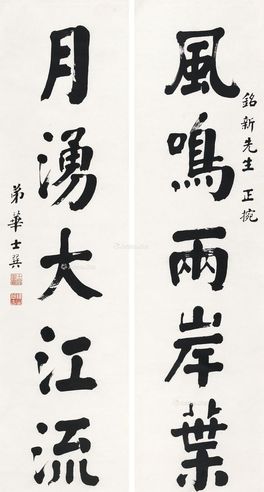 銘新先生 正捥
風鳴兩岸葉
月湧大江流
弟華士巽